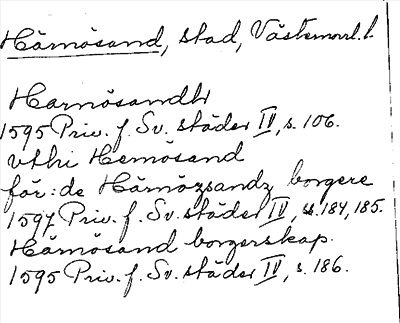 Härnösand, stad, Västernorrl. l.
Harnösandh
1595 Priv. f. Sv. städer IV, s. 106.
vthi Hernösand
för: de Härnözsandz borgere
1597 Priv. f. Sv. städer IV, s. 184, 185.
Härnösand borgerskap.
1595 Priv. f. Sv. städer IV, s. 186.